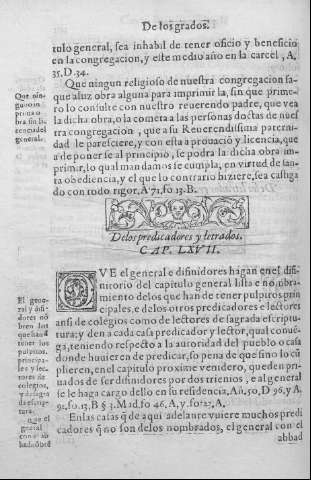 De los grados.
tulo general, sea inhabil de tener oficio y beneficio
en la congregacion, y este medio año en la carcel, A.
35. D. 34.
Que ningun religioso de nuestra congregacion sa-
que a luz obra alguna para imprimirla, sin que prime-
ro lo consulte con nuestro reuerendo padre, que vea
la dicha obra, o la cometa a las personas doctas de nues
tra congregacion, que a su Reuerendissima paterni-
dad le paresciere, y con esta aprouació y licencia, que
a de ponerse al principio, se podra la dicha obra im-
primir, lo qual mandamos se cumpla, en virtud de san-
ta obediencia, y el que lo contrario hiziere, sea castiga
do con todo rigor, A. 71. fo. 13. B.
Que nin-
gun
obra sin li-
cencia del
general.
De los predicadores y letrados.
CAP. LXVII.
QVE el general e difinidores hagan enel difi-
nitorio del capitulo general lista e nōbra-
miento de los que han de tener pulpitos prin
cipales, e de los otros predicadores e lectores
ansi de colegios como de lectores de sagrada escriptu-
ra; y den a cada predicador y lector, qual conuē-
ga, teniendo respecto a la autoridad del pueblo o casa
donde huuieren de predicar, so pena de que si no lo cū
plieren, en el capitulo proximo venidero, queden pri-
uados de ser difinidores por dos trienios, e al general
se le haga cargo dello en su residencia, Añ. 50, D 96, y A,
91. fo. 13. B § 3. Mad. fo 46, A, y. fo. 27, A.
En las casas q̄ de aqui adelante vuiere muchos predi
cadores q̄ no son delos nombrados, el general con el
abbad
El gene-
ral y difi-
dores nō
bren los
que haā d
tener los
pulpitos,
principa-
les y lec-
tores de
colegios,
y de sagra
da escrip-
tura.
general
con el ab